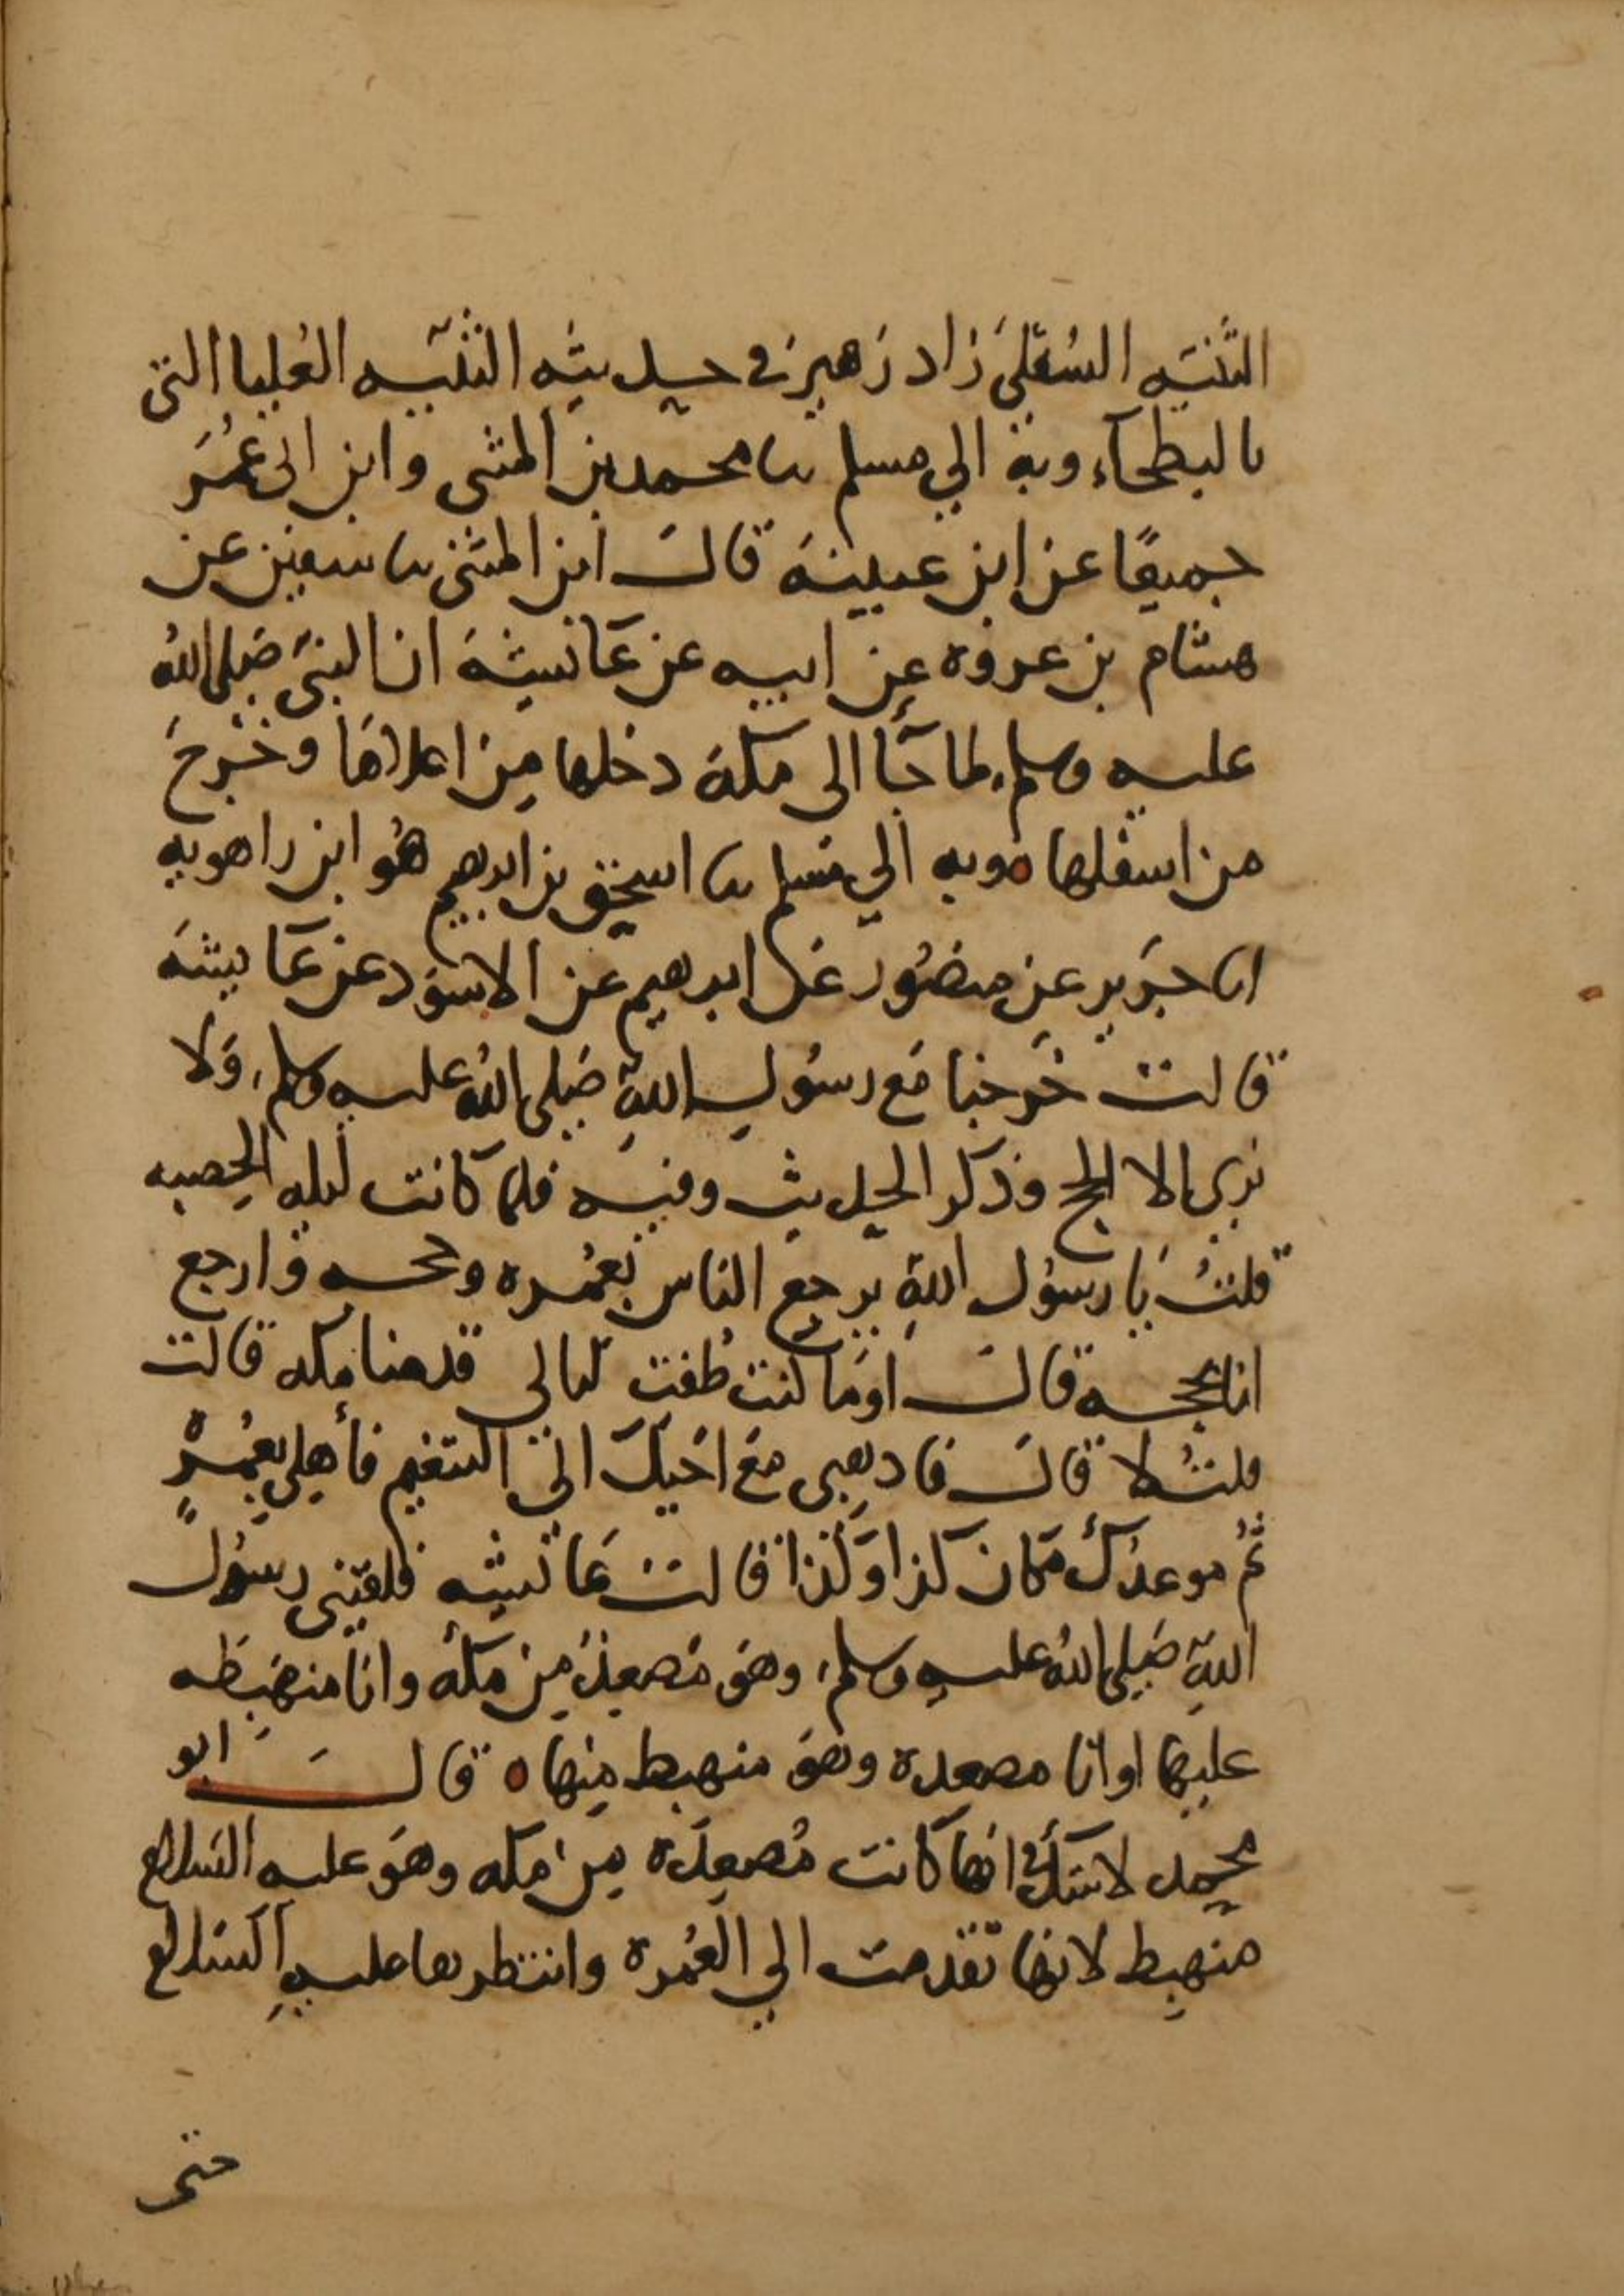 الثنيه السُفلىَ زاد زهير في حديثه الثنيّه العُليا التى
بالبطحآء وبه الي مسلم سا محمد بن المثنى وابن ابى عُمَر
جميعًا عن ابن عيينة قال ابن المثنى سا سفين عن
هشام بن عروه عن ابيه عن عَائشة ان النبيّ صَلى اللهُ
عليه وسلم، لما جَآ الى مكة دخلها من اعلاهَا وخَرجَ
من اسفلها ٥ وبه الي مسلم سا اسحق بن ابرهيم هُو ابن راهويه
اسا جَرير عن منصُور عَن ابرهيم عن الاسوَد عن عَايشَة
قالت خَرجنا مَع رسوُل اللهِ صَلى اللهُ عليه وسلم، وَلا
نري الا الحج وَذكر الحديث وفيه فلما كانت ليله الحصبه
قلتُ يَا رسوُل اللهِ يرجع الناس بعُمره وحجه وارجع
انا بحجه قال اوَما كنت طُفت ليالي قدمنا مكه قالت
قلتُ لا قال فاذهبى مَع اخيكَ الى التنعيم فأهِلي بعُمرةٍ
ثمُ موعدُك مَكان كذا وكذا قالت عَائشه فلقيَني رسوُل
اللهِ صَلى اللهُ عليه وسلم، وهوَ مُصعِدٌ من مكة وانا منهبَطه
عليهَا او انَا مصعده وهوَ منهبط منهَا ٥ قال ابو
محمد لا شكّ انها كانت مُصعِدَة من مكه وهوَ عليه السَلام
منهبط لانهَا تقدمت الي العُمرة وانتظرها عليهِ السَلام
حتى